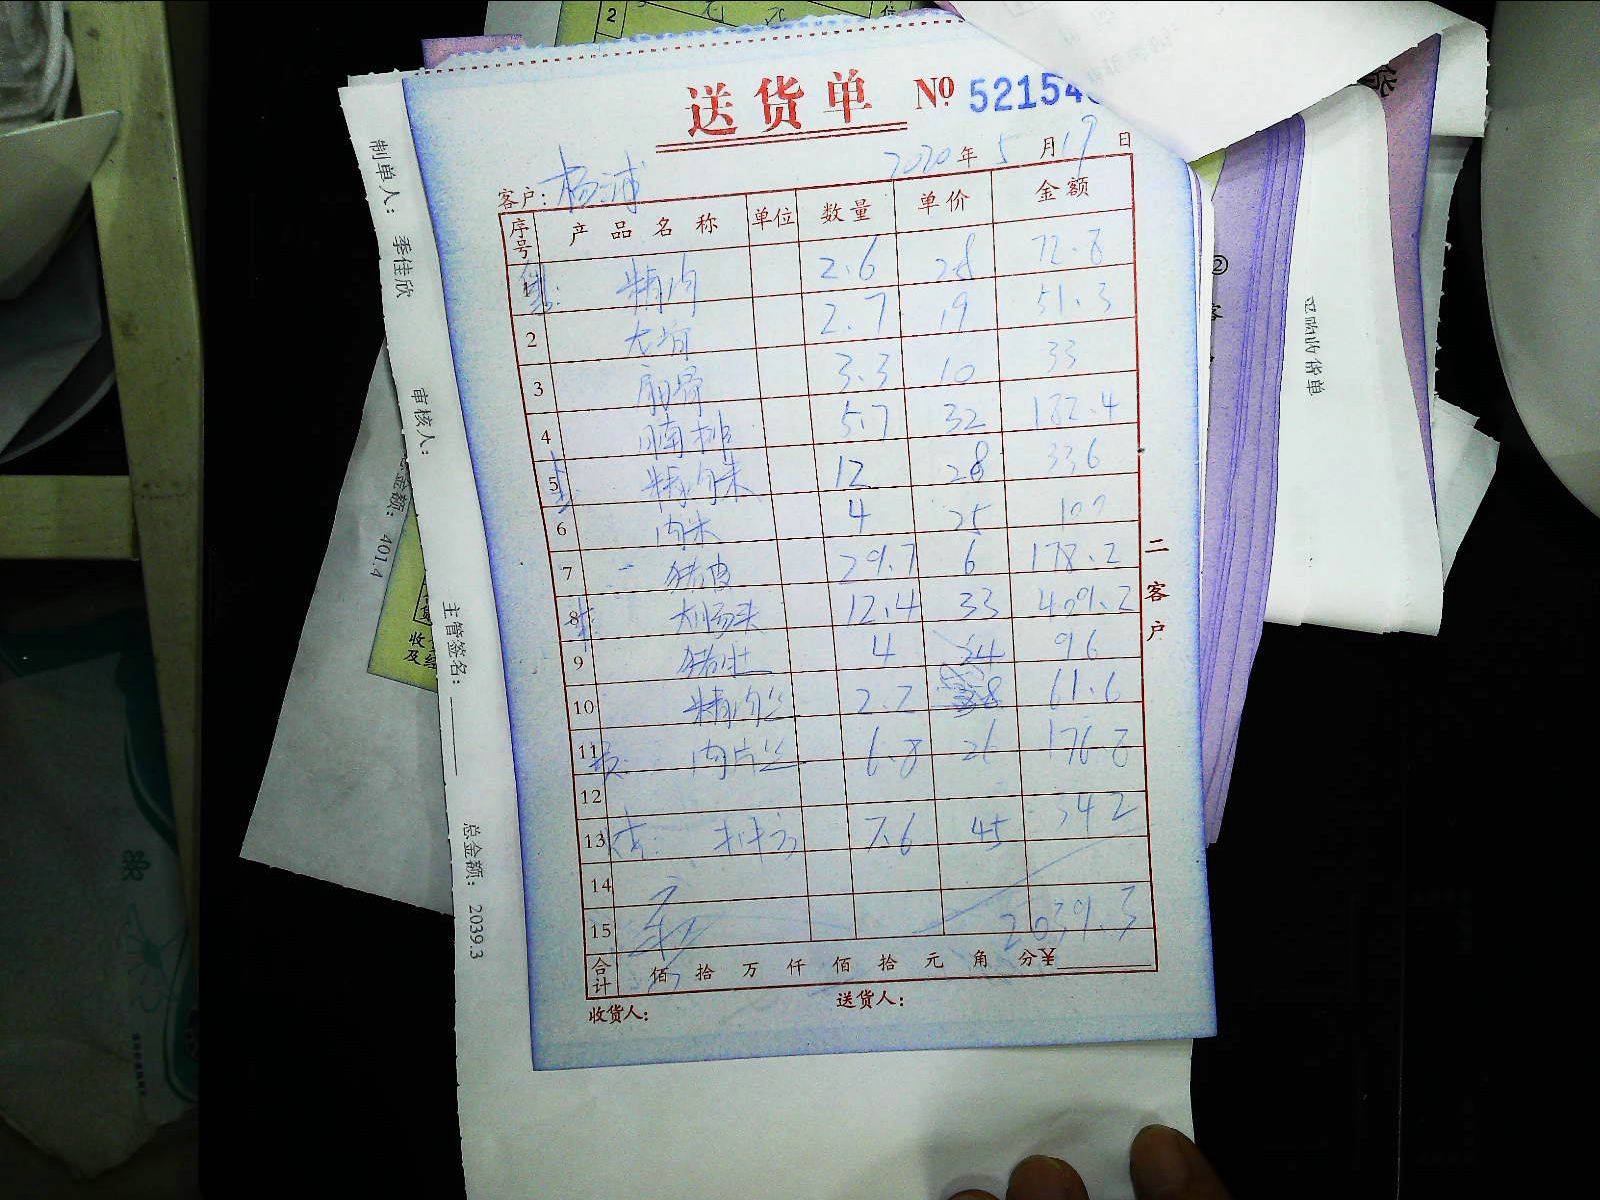 送货单 Nº 52154
2020年5月17日
客户：杨浦
序号 产品名称 单位 数量 单价 金额
精肉 2.6 28 72.8
2 龙骨 2.7 19 51.3
3 扇骨 3.3 10 33
4 腩排 5.7 32 182.4
5 精肉末 12 28 336
6 肉末 4 25 100
7 猪皮 29.7 6 178.2
8 大肠头 12.4 33 409.2
9 猪肚 4 24 96
10 精肉丝 2.2 28 61.6
11 肉片丝 6.8 26 176.8
12
13 7.6 45 342
14
15 2039.3
合计 佰拾万仟佰拾元角分¥
收货人： 送货人：
二客户
制单人： 季佳欣 审核人： 主管签名： 总金额： 2039.3
总金额： 401.4
采购收货单
2
②